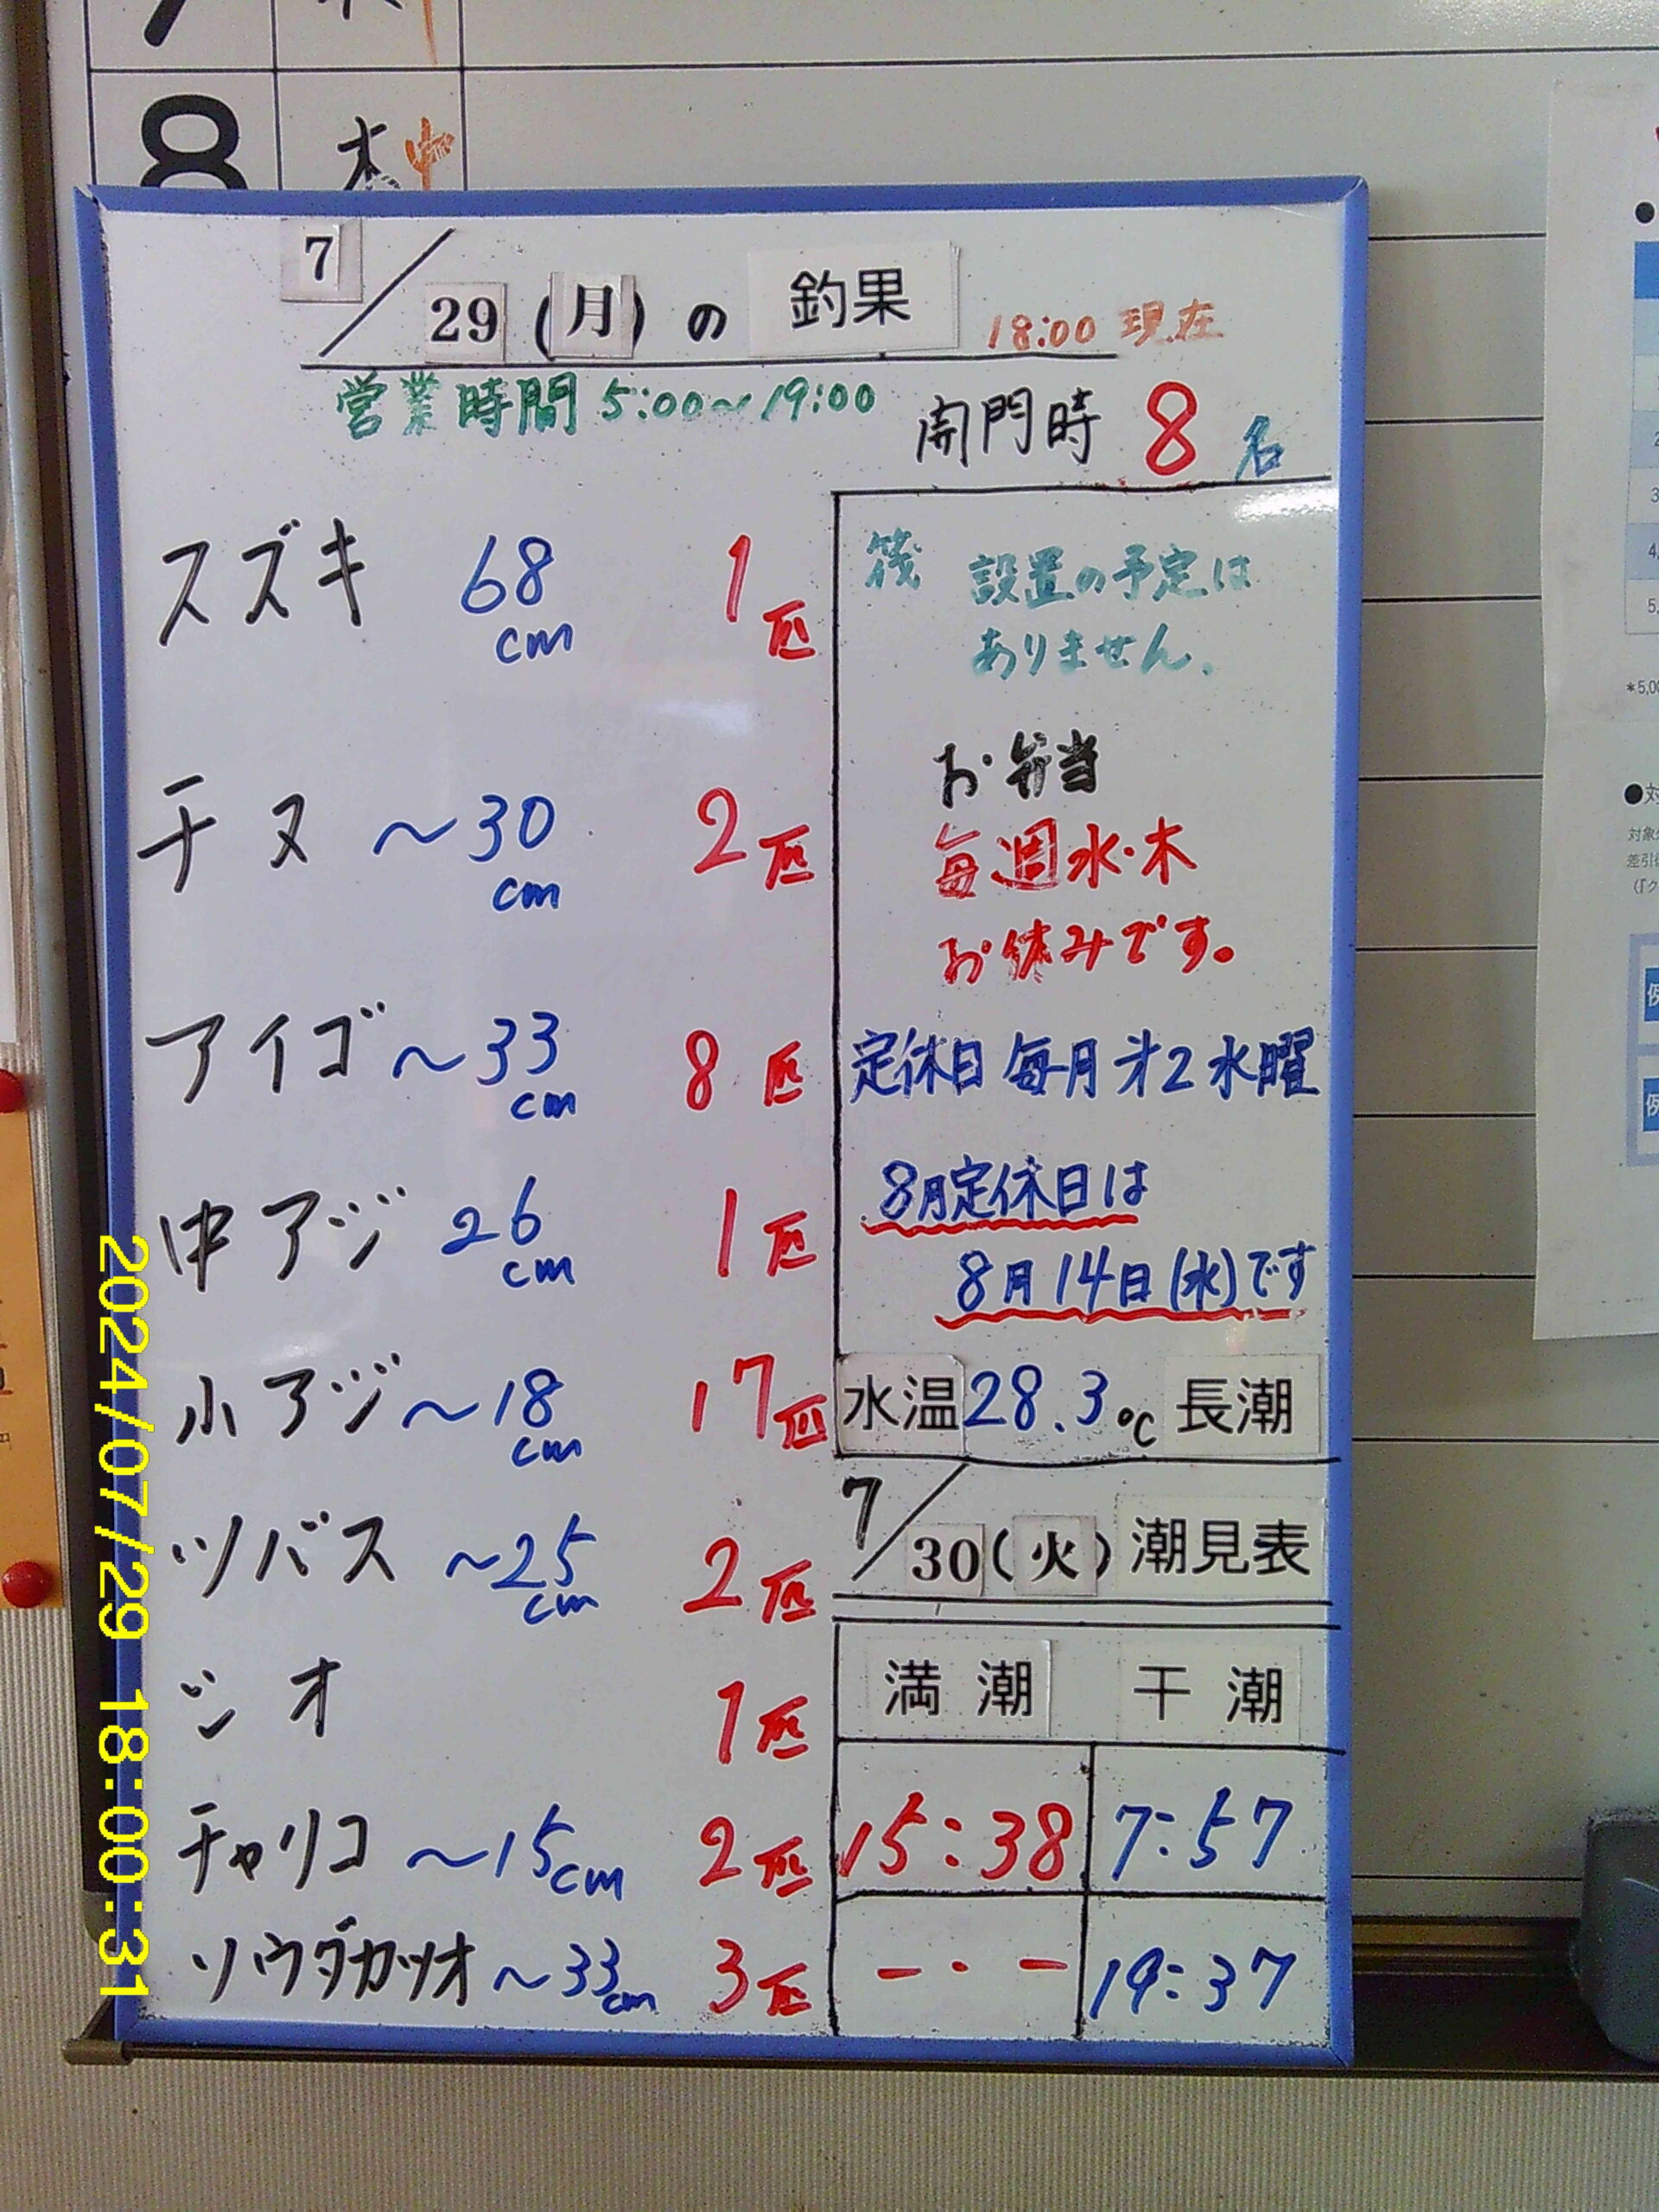 8 木 中
7/29(月)の 釣果 18:00 現在
営業時間 5:00~19:00
開門時 8名
スズキ 68cm 1匹
チヌ ~30cm 2匹
アイゴ ~33cm 8匹
中アジ 26cm 1匹
小アジ ~18cm 17匹
ツバス ~25cm 2匹
シオ 1匹
チャリコ ~15cm 2匹
ソウダカツオ ~33cm 3匹
筏 設置の予定は
ありません。
お弁当
毎週水・木
お休みです。
定休日 毎月才2水曜
8月定休日は
8月14日(水)です
水温 28.3℃ 長潮
7/30(火) 潮見表
満潮 干潮
15:38 7:57
-・- 19:37
2024/07/29 18:00:31